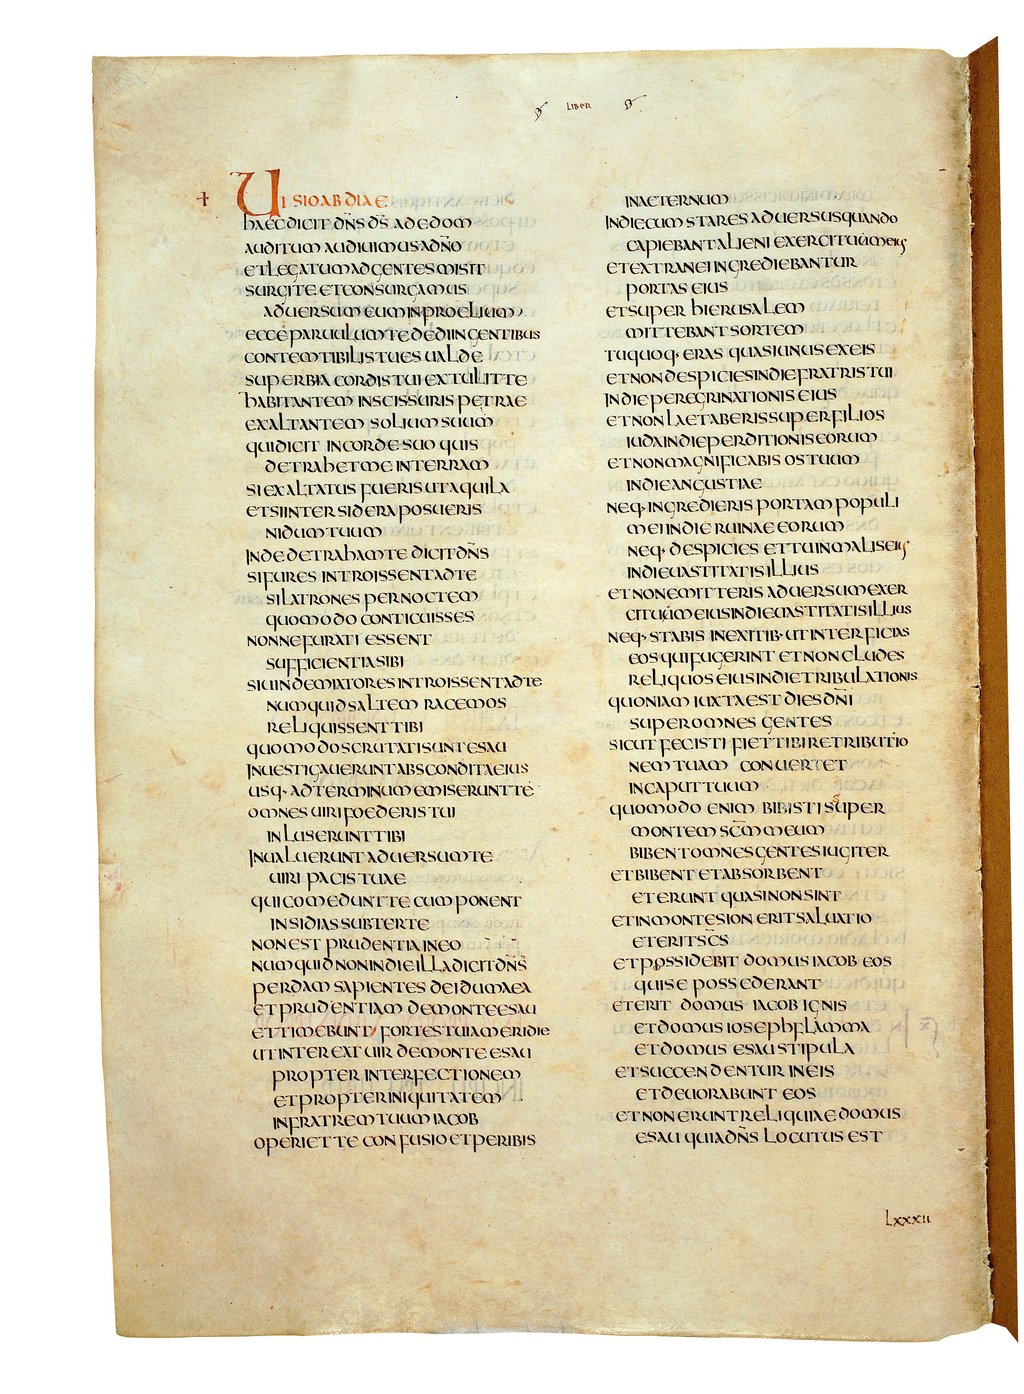 LIBER
UISIO ABDIAE
HAEC DICIT DN̄S DS̄ AD EDOM
AUDITUM AUDIUIMUS A DN̄O
ET LEGATUM AD GENTES MISIT
SURGITE ET CONSURGAMUS
ADUERSUM EUM IN PROELIUM
ECCE PARUULUM TE DEDI IN GENTIBUS
CONTEMTIBILIS TU ES UALDE
SUPERBIA CORDIS TUI EXTULIT TE
HABITANTEM IN SCISSURIS PETRAE
EXALTANTEM SOLIUM SUUM
QUI DICIT IN CORDE SUO QUIS
DETRAHET ME IN TERRAM
SI EXALTATUS FUERIS UT AQUILA
ET SI INTER SIDERA POSUERIS
NIDUM TUUM
INDE DETRAHAM TE DICIT DN̄S
SI FURES INTROISSENT AD TE
SI LATRONES PER NOCTEM
QUOMODO CONTICUISSES
NONNE FURATI ESSENT
SUFFICIENTIA SIBI
SI UINDEMIATORES INTROISSENT AD TE
NUMQUID SALTEM RACEMOS
RELIQUISSENT TIBI
QUOMODO SCRUTATI SUNT ESAU
INUESTIGAUERUNT ABSCONDITA EIUS
USQ· AD TERMINUM EMISERUNT TE
OMNES UIRI FOEDERIS TUI
INLUSERUNT TIBI
INUALUERUNT ADUERSUM TE
UIRI PACIS TUAE
QUI COMEDUNT TECUM PONENT
INSIDIAS SUBTER TE
NON EST PRUDENTIA IN EO
NUMQUID NON IN DIE ILLA DICIT DN̄S
PERDAM SAPIENTES DE IDUMAEA
ET PRUDENTIAM DE MONTE ESAU
ET TIMEBUNT FORTES TUI A MERIDIE
UT INTEREAT UIR DE MONTE ESAU
PROPTER INTERFECTIONEM
ET PROPTER INIQUITATEM
IN FRATREM TUUM IACOB
OPERIET TE CONFUSIO ET PERIBIS
IN AETERNUM
IN DIE CUM STARES ADUERSUS QUANDO
CAPIEBANT ALIENI EXERCITUM EIUS
ET EXTRANEI INGREDIEBANTUR
PORTAS EIUS
ET SUPER HIERUSALEM
MITTEBANT SORTEM
TU QUOQ· ERAS QUASI UNUS EX EIS
ET NON DESPICIES IN DIE FRATRIS TUI
IN DIE PEREGRINATIONIS EIUS
ET NON LAETABERIS SUPER FILIOS
IUDA IN DIE PERDITIONIS EORUM
ET NON MAGNIFICABIS OS TUUM
IN DIE ANGUSTIAE
NEQ· INGREDIERIS PORTAM POPULI
MEI IN DIE RUINAE EORUM
NEQ· DESPICIES ET TU IN MALIS EIUS
IN DIE UASTITATIS ILLIUS
ET NON EMITTERIS ADUERSUM EXER
CITUM EIUS IN DIE UASTITATIS ILLIUS
NEQ· STABIS IN EXITIB· UT INTERFICIAS
EOS QUI FUGERINT ET NON CLUDES
RELIQUOS EIUS IN DIE TRIBULATIONIS
QUONIAM IUXTA EST DIES DN̄I
SUPER OMNES GENTES
SICUT FECISTI FIET TIBI RETRIBUTIO
NEM TUAM CONUERTET
IN CAPUT TUUM
QUOMODO ENIM BIBISTI SUPER
MONTEM SC̄M MEUM
BIBENT OMNES GENTES IUGITER
ET BIBENT ET ABSORBENT
ET ERUNT QUASI NON SINT
ET IN MONTE SION ERIT SALUATIO
ET ERIT SC̄S
ET POSSIDEBIT DOMUS IACOB EOS
QUI SE POSSEDERANT
ET ERIT DOMUS IACOB IGNIS
ET DOMUS IOSEPH FLAMMA
ET DOMUS ESAU STIPULA
ET SUCCENDENTUR IN EIS
ET DEUORABUNT EOS
ET NON ERUNT RELIQUIAE DOMUS
ESAU QUIA DN̄S LOCUTUS EST
LXXXII